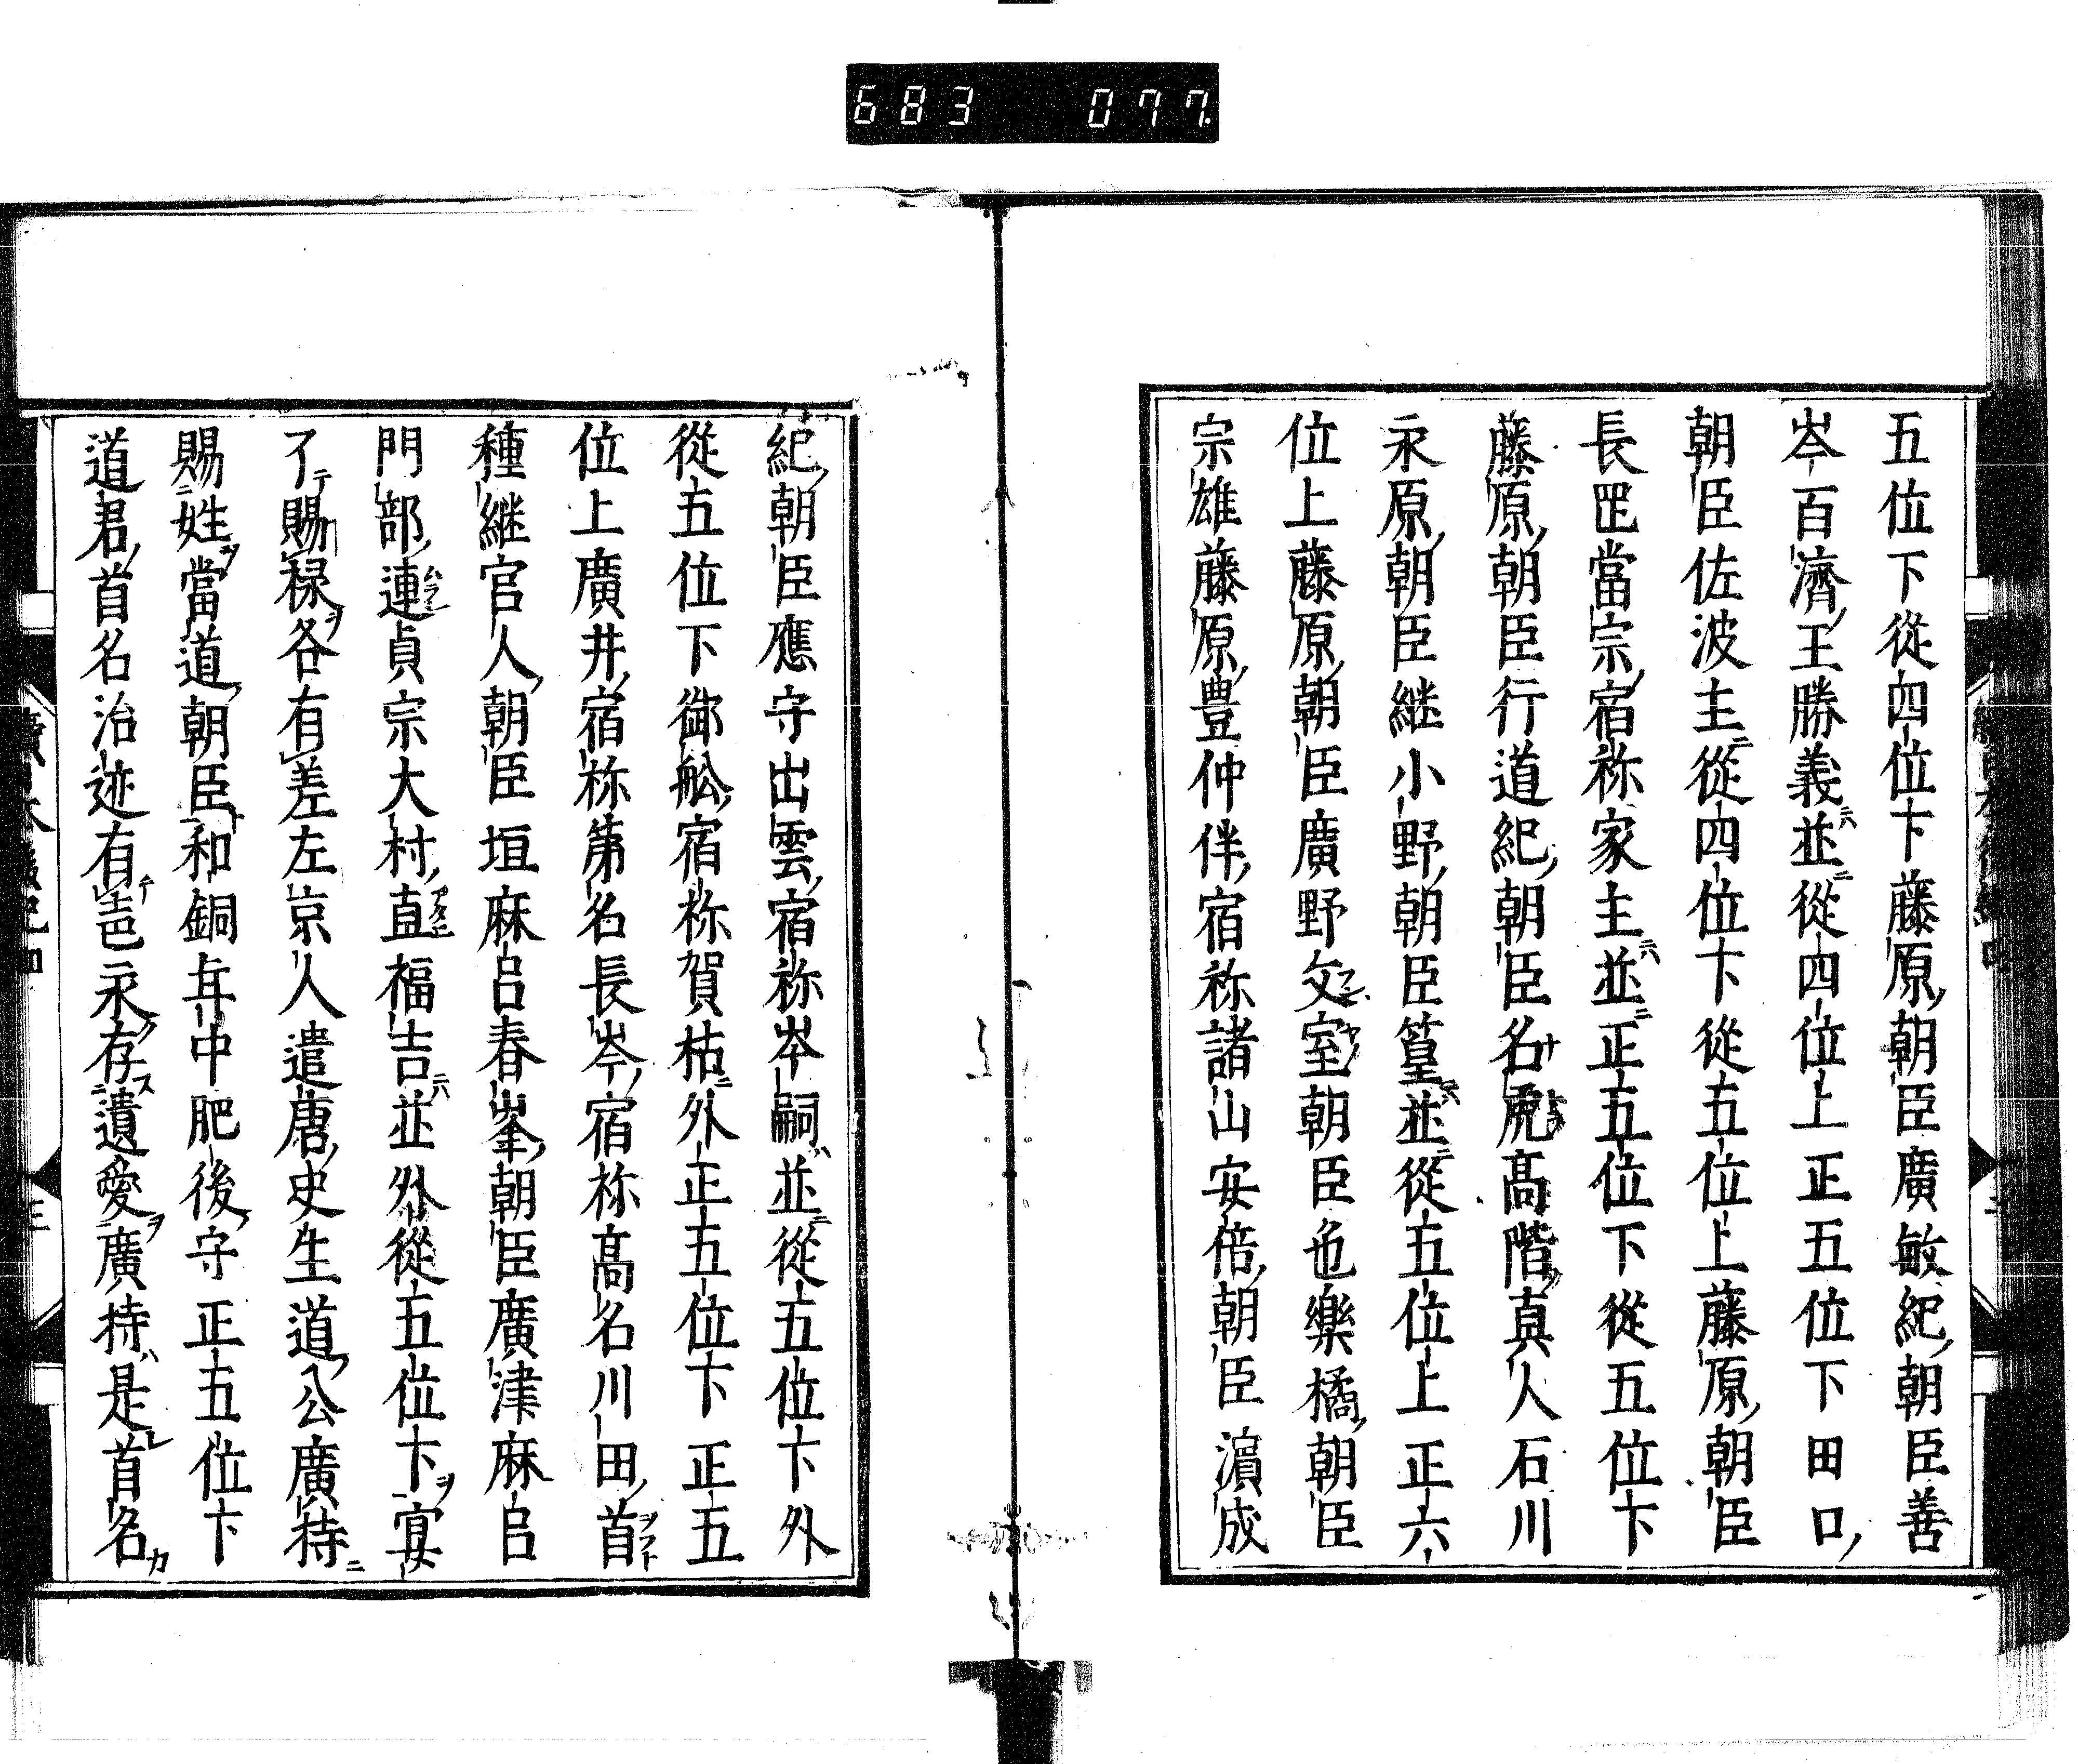 683 077.
五位下從四位下藤原朝臣廣敏紀朝臣善
岑百濟王勝義並從四位上正五位下田口
朝臣佐波主從四位下從五位上藤原朝臣
長罡當宗宿祢家主並正五位下從五位下
藤原朝臣行道紀朝臣名虎高階真人石川
永原朝臣継小野朝臣篁並從五位上正六
位上藤原朝臣廣野文室朝臣也樂橘朝臣
宗雄藤原豊仲伴宿祢諸山安倍朝臣濵成
紀朝臣應守出雲宿祢岑嗣並從五位下外
從五位下御舩宿祢賀枯外正五位下正五
位上廣井宿祢第名長岑宿祢高名川田首
種継官人朝臣垣麻呂春岑朝臣廣津麻呂
門部連貞宗大村直福吉並外從五位下宴
了賜禄各有差左京人遣唐史生道公廣持
賜姓當道朝臣和銅年中肥後守正五位下
道君首名治迹有㠯永存遺愛廣持是首名